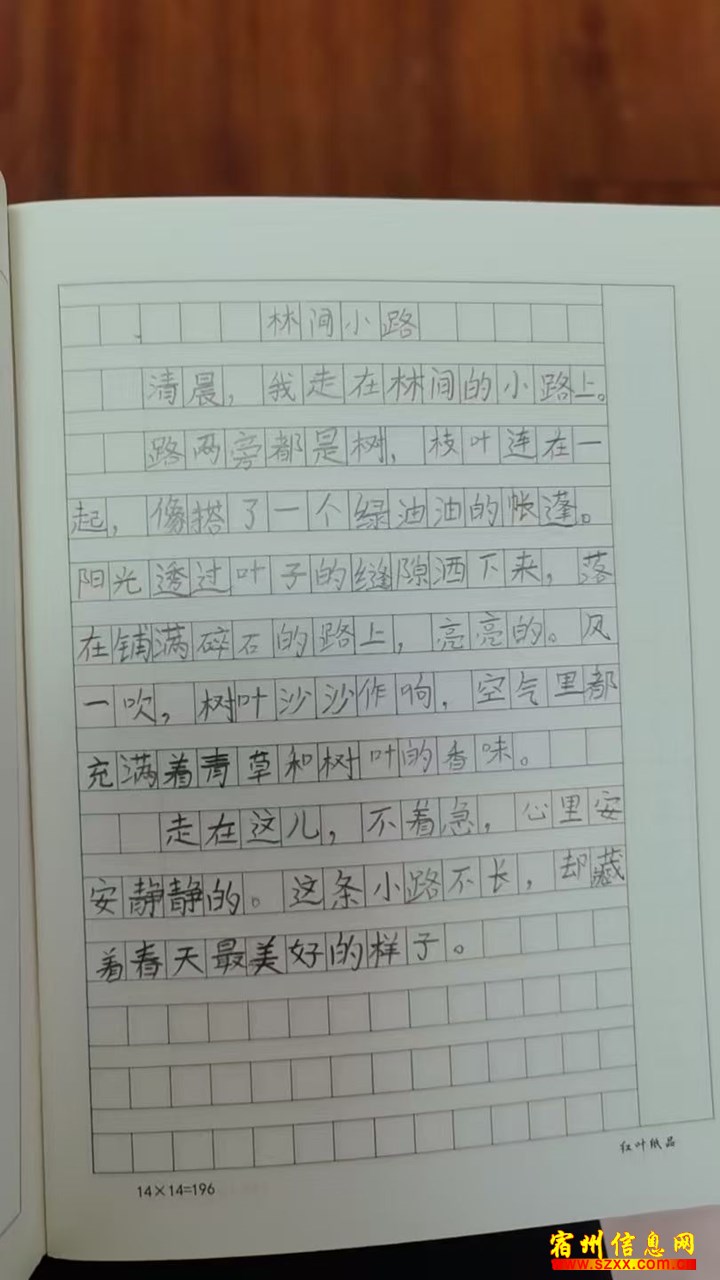 林间小路
清晨，我走在林间的小路上。
路两旁都是树，枝叶连在一
起，像搭了一个绿油油的帐蓬。
阳光透过叶子的缝隙洒下来，落
在铺满碎石的路上，亮亮的。风
一吹，树叶沙沙作响，空气里都
充满着青草和树叶的香味。
走在这儿，不着急，心里安
安静静的。这条小路不长，却藏
着春天最美好的样子。
红叶纸品
14×14=196
宿州信息网
www.szxx.com.cn